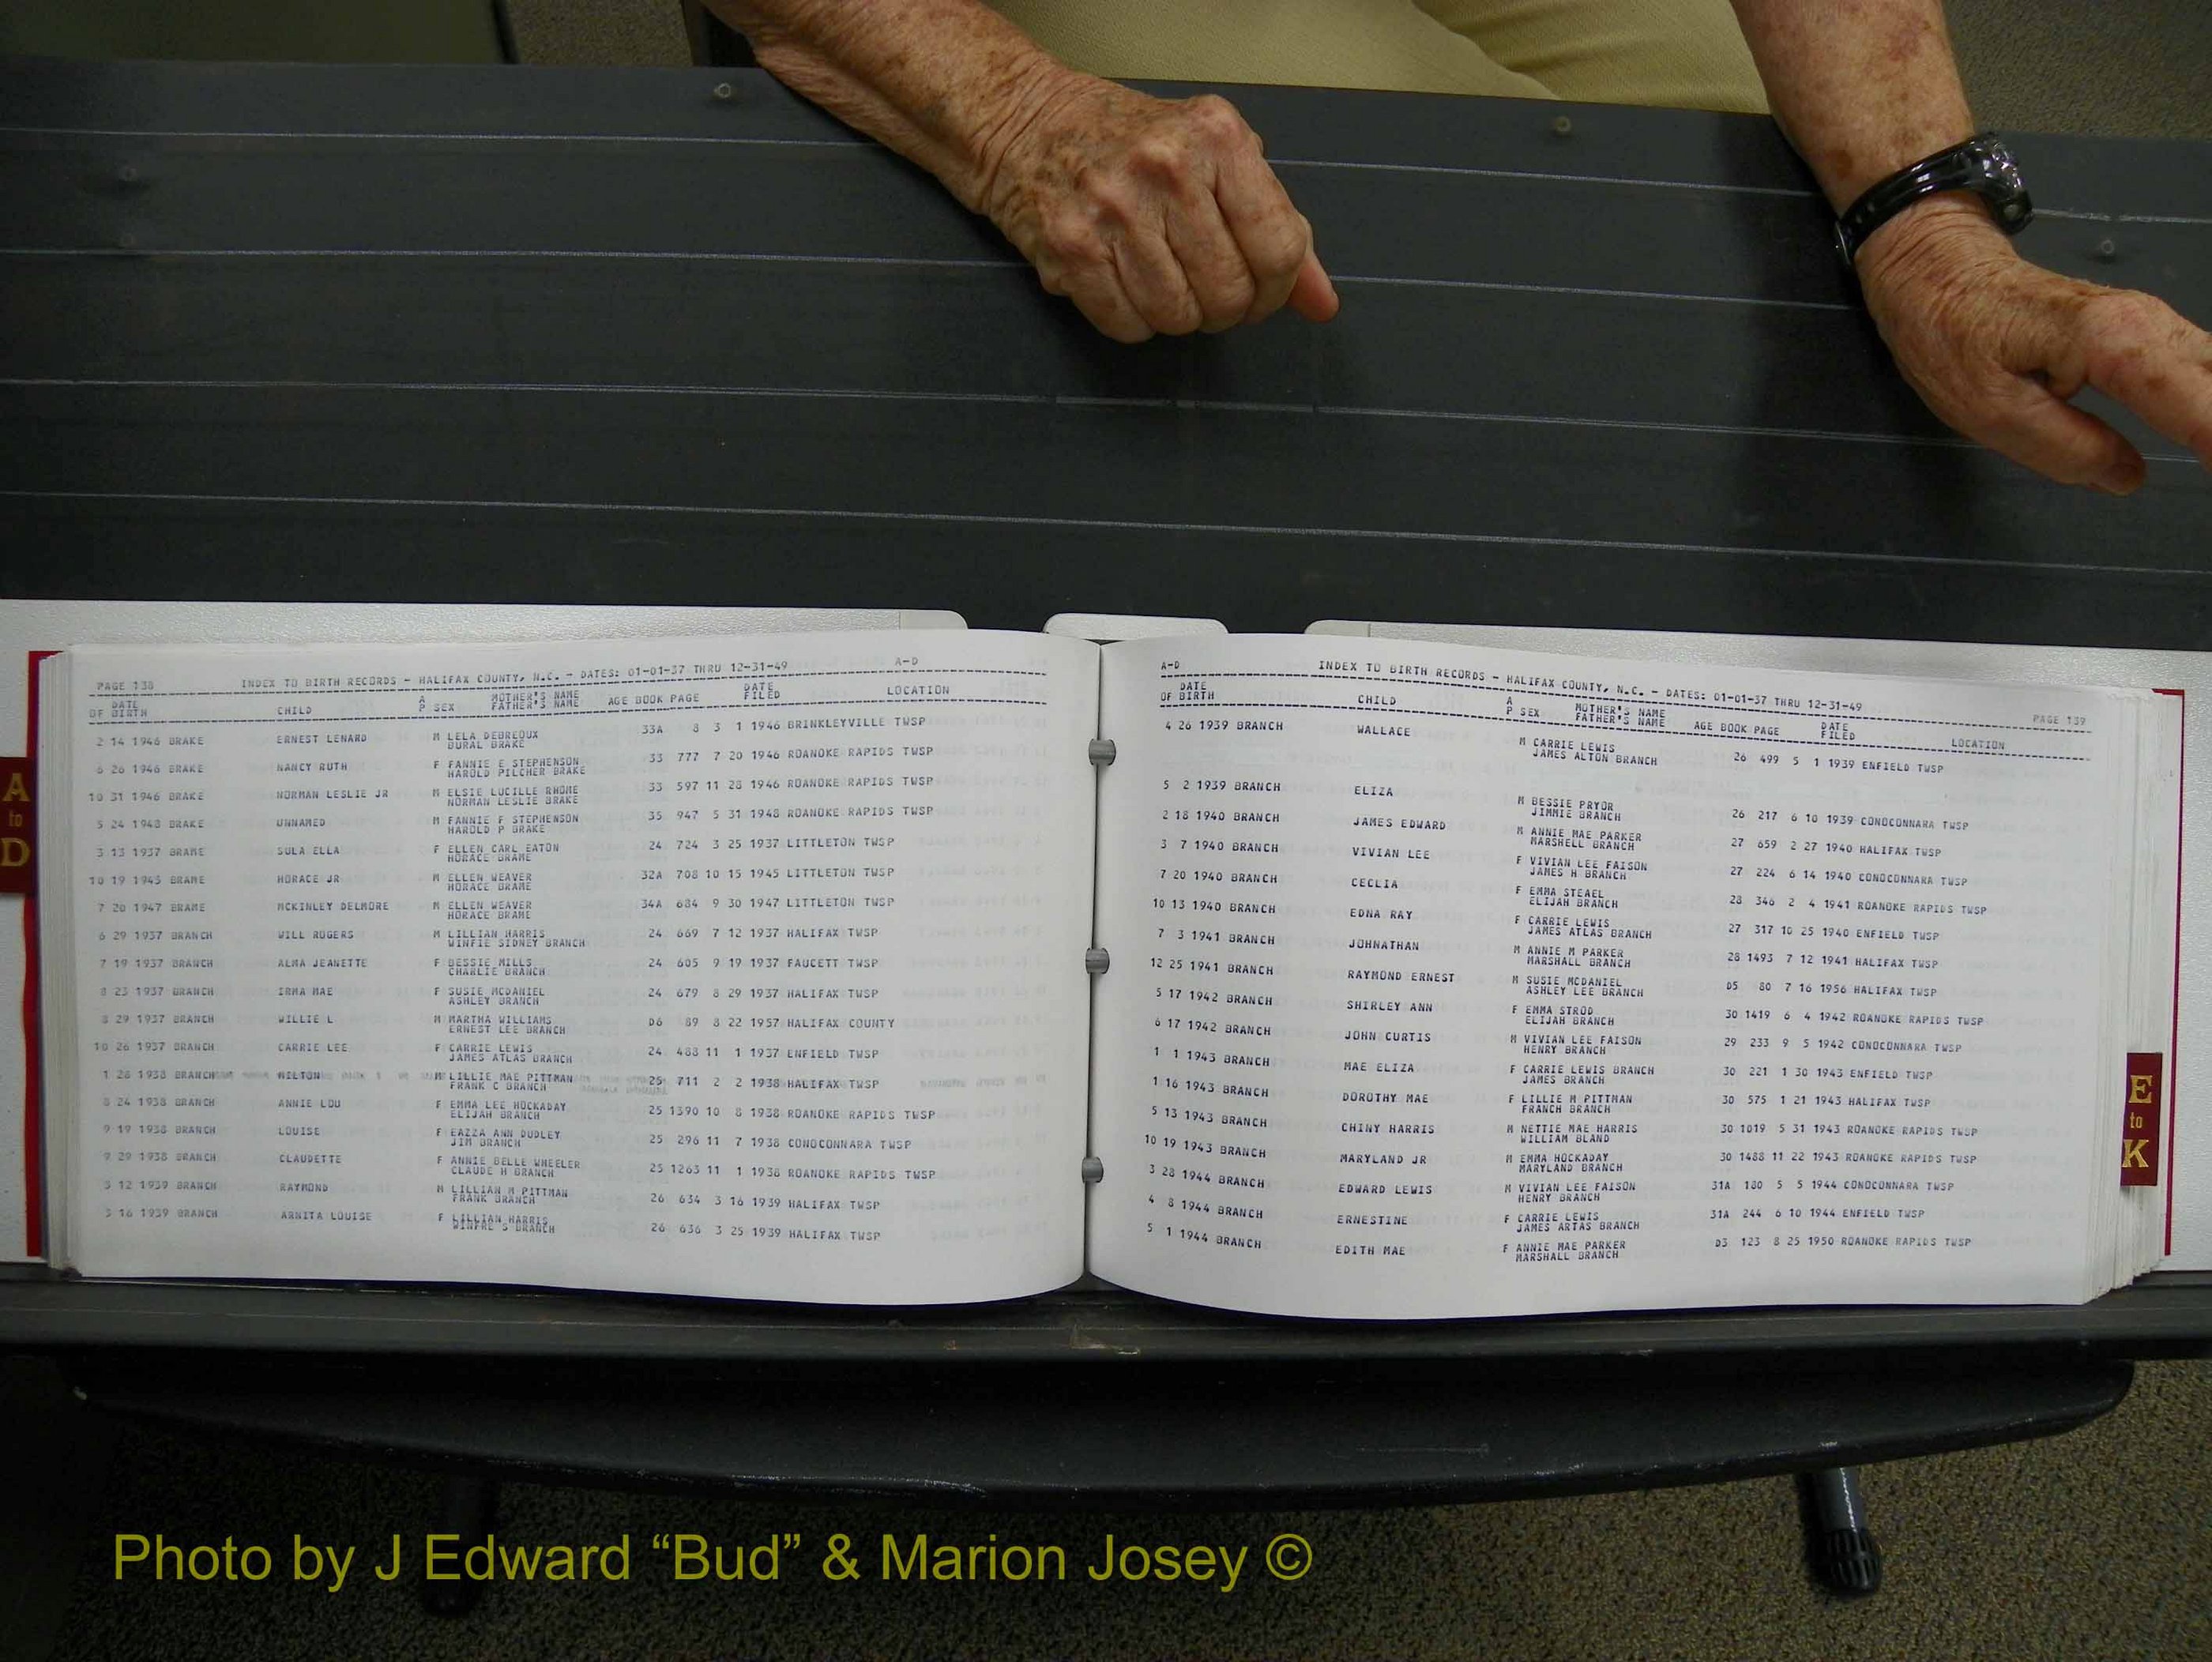 A
to
D
PAGE 138 INDEX TO BIRTH RECORDS - HALIFAX COUNTY, N.C. - DATES: 01-01-37 THRU 12-31-49 A-D
DATE OF BIRTH CHILD A P SEX MOTHER'S NAME FATHER'S NAME AGE BOOK PAGE DATE FILED LOCATION
2 14 1946 BRAKE ERNEST LENARD M LELA DEBREOUX 33A 8 3 1 1946 BRINKLEYVILLE TWSP
DURAL BRAKE
6 26 1946 BRAKE NANCY RUTH F FANNIE E STEPHENSON 33 777 7 20 1946 ROANOKE RAPIDS TWSP
HAROLD PILCHER BRAKE
10 31 1946 BRAKE NORMAN LESLIE JR M ELSIE LUCILLE RHOME 33 597 11 28 1946 ROANOKE RAPIDS TWSP
NORMAN LESLIE BRAKE
5 24 1948 BRAKE UNNAMED M FANNIE F STEPHENSON 35 947 5 31 1948 ROANOKE RAPIDS TWSP
HAROLD P BRAKE
3 13 1937 BRAME SULA ELLA F ELLEN CARL EATON 24 724 3 25 1937 LITTLETON TWSP
HORACE BRAME
10 19 1945 BRAME HORACE JR M ELLEN WEAVER 32A 708 10 15 1945 LITTLETON TWSP
HORACE BRAME
7 20 1947 BRAME MCKINLEY DELMORE M ELLEN WEAVER 34A 684 9 30 1947 LITTLETON TWSP
HORACE BRAME
6 29 1937 BRANCH WILL ROGERS M LILLIAN HARRIS 24 669 7 12 1937 HALIFAX TWSP
WINFIE SIDNEY BRANCH
7 19 1937 BRANCH ALMA JEANETTE F BESSIE MILLS 24 605 9 19 1937 FAUCETT TWSP
CHARLIE BRANCH
8 23 1937 BRANCH IRMA MAE F SUSIE MCDANIEL 24 679 8 29 1937 HALIFAX TWSP
ASHLEY BRANCH
8 29 1937 BRANCH WILLIE L M MARTHA WILLIAMS D6 89 8 22 1957 HALIFAX COUNTY
ERNEST LEE BRANCH
10 26 1937 BRANCH CARRIE LEE F CARRIE LEWIS 24 488 11 1 1937 ENFIELD TWSP
JAMES ATLAS BRANCH
1 28 1938 BRANCH MILTON M LILLIE MAE PITTMAN 25 711 2 2 1938 HALIFAX TWSP
FRANK C BRANCH
8 24 1938 BRANCH ANNIE LOU F EMMA LEE HOCKADAY 25 1390 10 8 1938 ROANOKE RAPIDS TWSP
ELIJAH BRANCH
9 19 1938 BRANCH LOUISE F EAZZA ANN DUDLEY 25 296 11 7 1938 CONOCONNARA TWSP
JIM BRANCH
9 29 1938 BRANCH CLAUDETTE F ANNIE BELLE WHEELER 25 1263 11 1 1938 ROANOKE RAPIDS TWSP
CLAUDE H BRANCH
3 12 1939 BRANCH RAYMOND M LILLIAN M PITTMAN 26 634 3 16 1939 HALIFAX TWSP
FRANK BRANCH
3 16 1939 BRANCH ARNITA LOUISE F LILLIAN HARRIS 26 636 3 25 1939 HALIFAX TWSP
WINFRE S BRANCH
A-D INDEX TO BIRTH RECORDS - HALIFAX COUNTY, N.C. - DATES: 01-01-37 THRU 12-31-49 PAGE 139
DATE OF BIRTH CHILD A P SEX MOTHER'S NAME FATHER'S NAME AGE BOOK PAGE DATE FILED LOCATION
4 26 1939 BRANCH WALLACE M CARRIE LEWIS 26 499 5 1 1939 ENFIELD TWSP
JAMES ALTON BRANCH
5 2 1939 BRANCH ELIZA M BESSIE PRYOR 26 217 6 10 1939 CONOCONNARA TWSP
JIMMIE BRANCH
2 18 1940 BRANCH JAMES EDWARD M ANNIE MAE PARKER 27 659 2 27 1940 HALIFAX TWSP
MARSHELL BRANCH
3 7 1940 BRANCH VIVIAN LEE F VIVIAN LEE FAISON 27 224 6 14 1940 CONOCONNARA TWSP
JAMES H BRANCH
7 20 1940 BRANCH CECLIA F EMMA STEAEL 28 346 2 4 1941 ROANOKE RAPIDS TWSP
ELIJAH BRANCH
10 13 1940 BRANCH EDNA RAY F CARRIE LEWIS 27 317 10 25 1940 ENFIELD TWSP
JAMES ATLAS BRANCH
7 3 1941 BRANCH JOHNATHAN M ANNIE M PARKER 28 1493 7 12 1941 HALIFAX TWSP
MARSHALL BRANCH
12 25 1941 BRANCH RAYMOND ERNEST M SUSIE MCDANIEL D5 80 7 16 1956 HALIFAX TWSP
ASHLEY LEE BRANCH
5 17 1942 BRANCH SHIRLEY ANN F EMMA STROD 30 1419 6 4 1942 ROANOKE RAPIDS TWSP
ELIJAH BRANCH
6 17 1942 BRANCH JOHN CURTIS M VIVIAN LEE FAISON 29 233 9 5 1942 CONOCONNARA TWSP
HENRY BRANCH
1 1 1943 BRANCH MAE ELIZA F CARRIE LEWIS BRANCH 30 221 1 30 1943 ENFIELD TWSP
JAMES BRANCH
1 16 1943 BRANCH DOROTHY MAE F LILLIE M PITTMAN 30 575 1 21 1943 HALIFAX TWSP
FRANCH BRANCH
5 13 1943 BRANCH CHINY HARRIS M NETTIE MAE HARRIS 30 1019 5 31 1943 ROANOKE RAPIDS TWSP
WILLIAM BLAND
10 19 1943 BRANCH MARYLAND JR M EMMA HOCKADAY 30 1488 11 22 1943 ROANOKE RAPIDS TWSP
MARYLAND BRANCH
3 28 1944 BRANCH EDWARD LEWIS M VIVIAN LEE FAISON 31A 180 5 5 1944 CONOCONNARA TWSP
HENRY BRANCH
4 8 1944 BRANCH ERNESTINE F CARRIE LEWIS 31A 244 6 10 1944 ENFIELD TWSP
JAMES ARTAS BRANCH
5 1 1944 BRANCH EDITH MAE F ANNIE MAE PARKER D3 123 8 25 1950 ROANOKE RAPIDS TWSP
MARSHALL BRANCH
E
to
K
Photo by J Edward “Bud” & Marion Josey ©